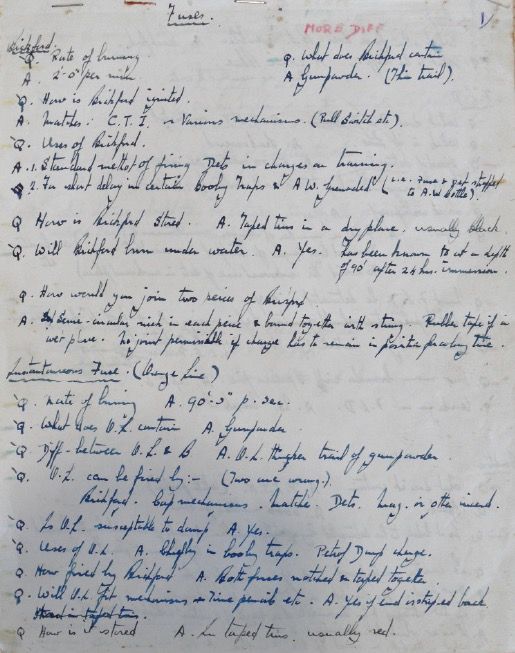 Fuses.
MORE DIFF
1/
Bickford.
Q. Rate of burning
A. 2'-0" per min
Q. What does Bickford contain
A. Gunpowder. (Thin trail).
Q. How is Bickford ignited.
A. Matches. C.T.I. or Various mechanisms. (Pull Switch etc.)
Q. Uses of Bickford.
A. 1. Standard method of firing Dets in charges on training.
2. For short delay in certain Booby Traps & A.W. Grenades (i.e. fuse & strapped to A.W bottle)
Q How is Bickford Stored. A. Taped tins in a dry place, usually black.
Q. Will Bickford burn under water. A. Yes. Has been known to at a depth
of 90' after 24 hrs. immersion.
Q. How would you join two pieces of Bickford
A. Semi-circular nick in each piece & bound together with string. Rubber tape if in
wet place. No joint permissible if charge has to remain in position for a long time.
Instantaneous Fuse. (Orange Line)
Q. Rate of burning A. 90'-0" p. sec.
Q. What does O.L. contain A. Gunpowder.
Q. Diff. between O.L. & B A. O.L. thicker trail of gunpowder.
Q. O.L. can be fired by:- (Two are wrong.).
Bickford. Cap mechanisms. Matches. Dets. mag. or other incend.
Q. Is O.L. susceptable to damp A. Yes.
Q. Uses of O.L. A. Chiefly in booby traps. Petrol Dump charge.
Q. How fired by Bickford A. Both fuses notched & taped together.
Q. Will O.L. fit mechanisms & Time pencils etc. A. Yes if end is striped back
Stored in taped tins.
Q How is it stored A. In taped tins, usually red.